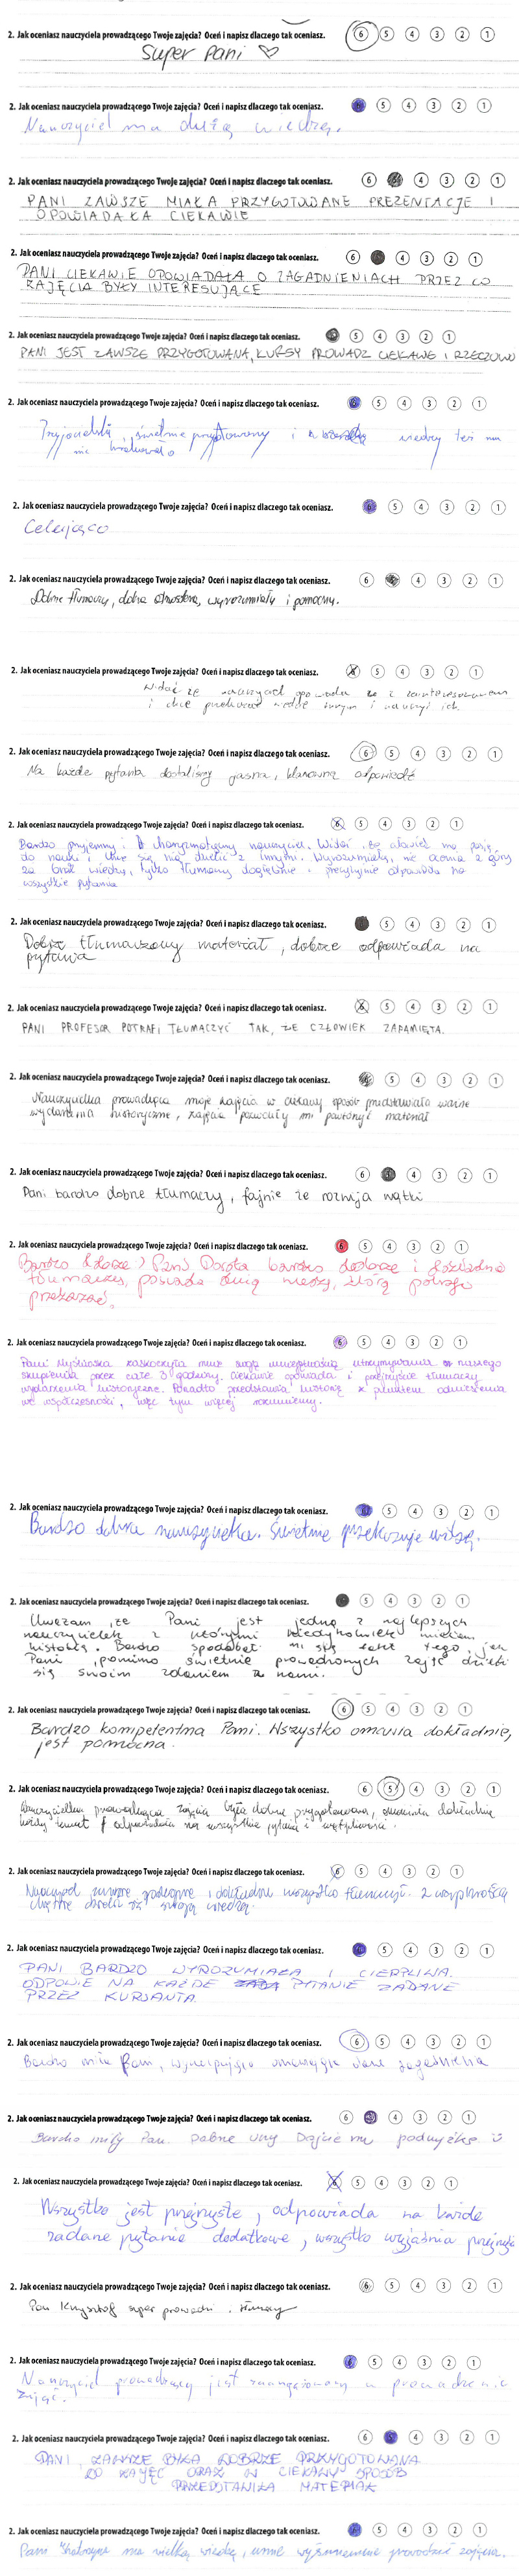 2. Jak oceniasz nauczyciela prowadzącego Twoje zajęcia? Oceń i napisz dlaczego tak oceniasz. 6 5 4 3 2 1
Super Pani ♡
2. Jak oceniasz nauczyciela prowadzącego Twoje zajęcia? Oceń i napisz dlaczego tak oceniasz. 5 4 3 2 1
Nauczyciel ma dużą wiedzę.
2. Jak oceniasz nauczyciela prowadzącego Twoje zajęcia? Oceń i napisz dlaczego tak oceniasz. 6 4 3 2 1
PANI ZAWSZE MIAŁA PRZYGOTOWANE PREZENTACJE I
OPOWIADAŁA CIEKAWIE
2. Jak oceniasz nauczyciela prowadzącego Twoje zajęcia? Oceń i napisz dlaczego tak oceniasz. 6 4 3 2 1
PANI CIEKAWIE OPOWIADAŁA O ZAGADNIENIACH PRZEZ CO
ZAJĘCIA BYŁY INTERESUJĄCE
2. Jak oceniasz nauczyciela prowadzącego Twoje zajęcia? Oceń i napisz dlaczego tak oceniasz. 5 4 3 2 1
PANI JEST ZAWSZE PRZYGOTOWANA, KURSY PROWADZ CIEKAWE I RZECZOWO
2. Jak oceniasz nauczyciela prowadzącego Twoje zajęcia? Oceń i napisz dlaczego tak oceniasz. 6 5 4 3 2 1
Przyjacielski, świetnie przygotowany i wiedzy też mu
nie brakowało
2. Jak oceniasz nauczyciela prowadzącego Twoje zajęcia? Oceń i napisz dlaczego tak oceniasz. 6 5 4 3 2 1
Celująco
2. Jak oceniasz nauczyciela prowadzącego Twoje zajęcia? Oceń i napisz dlaczego tak oceniasz. 6 5 4 3 2 1
Dobrze tłumaczy, dobra atmosfera, wyrozumiały i pomocny.
2. Jak oceniasz nauczyciela prowadzącego Twoje zajęcia? Oceń i napisz dlaczego tak oceniasz. 6 5 4 3 2 1
Widać że nauczyciel opowiada to z zainteresowaniem
i chce przekazać wiedzę innym i nauczyć ich.
2. Jak oceniasz nauczyciela prowadzącego Twoje zajęcia? Oceń i napisz dlaczego tak oceniasz. 6 5 4 3 2 1
Na każde pytania dostaliśmy jasną, klarowną odpowiedź
2. Jak oceniasz nauczyciela prowadzącego Twoje zajęcia? Oceń i napisz dlaczego tak oceniasz. 6 5 4 3 2 1
Bardzo przyjemny i charyzmatyczny nauczyciel. Widać, że człowiek ma pasję
do nauki i chce się nią dzielić z innymi. Wyrozumiały, nie ocenia z góry
za brak wiedzy, tylko tłumaczy dogłębnie i precyzyjnie odpowiada na
wszystkie pytania
2. Jak oceniasz nauczyciela prowadzącego Twoje zajęcia? Oceń i napisz dlaczego tak oceniasz. 5 4 3 2 1
Dobrze tłumaczony materiał, dobrze odpowiada na
pytania
2. Jak oceniasz nauczyciela prowadzącego Twoje zajęcia? Oceń i napisz dlaczego tak oceniasz. 6 5 4 3 2 1
PANI PROFESOR POTRAFI TŁUMACZYĆ TAK, ŻE CZŁOWIEK ZAPAMIĘTA.
2. Jak oceniasz nauczyciela prowadzącego Twoje zajęcia? Oceń i napisz dlaczego tak oceniasz. 6 5 4 3 2 1
Nauczycielka prowadząca moje zajęcia w ciekawy sposób przedstawiała ważne
wydarzenia historyczne, zajęcia pozwoliły mi powtórzyć materiał
2. Jak oceniasz nauczyciela prowadzącego Twoje zajęcia? Oceń i napisz dlaczego tak oceniasz. 6 4 3 2 1
Pani bardzo dobrze tłumaczy, fajnie że rozwija wątki
2. Jak oceniasz nauczyciela prowadzącego Twoje zajęcia? Oceń i napisz dlaczego tak oceniasz. 6 5 4 3 2 1
Bardzo dobrze :) Pani Dorota bardzo dobrze i dokładnie
tłumaczy, posiada dużą wiedzę, którą potrafi
przekazać.
2. Jak oceniasz nauczyciela prowadzącego Twoje zajęcia? Oceń i napisz dlaczego tak oceniasz. 6 5 4 3 2 1
Pani zaskoczyła mnie swoją umiejętnością utrzymywania naszego
skupienia przez całe 3 godziny. Ciekawie opowiada i przejrzyście tłumaczy
wydarzenia historyczne. Ponadto przedstawia historię z punktem odniesienia
we współczesności, więc tym więcej rozumiemy.
2. Jak oceniasz nauczyciela prowadzącego Twoje zajęcia? Oceń i napisz dlaczego tak oceniasz. 5 4 3 2 1
Bardzo dobra nauczycielka. Świetnie przekazuje wiedzę.
2. Jak oceniasz nauczyciela prowadzącego Twoje zajęcia? Oceń i napisz dlaczego tak oceniasz. 5 4 3 2 1
Uważam, że Pani jest jedną z najlepszych
nauczycielek z którymi kiedykolwiek miałem
historię. Bardzo spodobał mi się fakt tego, jak
Pani, pomimo świetnie prowadzonych zajęć dzieli
się swoim zdaniem z nami.
2. Jak oceniasz nauczyciela prowadzącego Twoje zajęcia? Oceń i napisz dlaczego tak oceniasz. 6 5 4 3 2 1
Bardzo kompetentna Pani. Wszystko omawia dokładnie,
jest pomocna.
2. Jak oceniasz nauczyciela prowadzącego Twoje zajęcia? Oceń i napisz dlaczego tak oceniasz. 6 5 4 3 2 1
Nauczycielka prowadząca zajęcia była dobrze przygotowana, omawiała dokładnie
każdy temat odpowiadała na wszystkie pytania i wątpliwości.
2. Jak oceniasz nauczyciela prowadzącego Twoje zajęcia? Oceń i napisz dlaczego tak oceniasz. 6 5 4 3 2 1
Nauczyciel zawsze i dokładnie wszystko tłumaczył. Z
chętnie dzielił się swoją wiedzą.
2. Jak oceniasz nauczyciela prowadzącego Twoje zajęcia? Oceń i napisz dlaczego tak oceniasz. 6 5 4 3 2 1
PANI BARDZO WYROZUMIAŁA I CIERPLIWA.
ODPOWIE NA KAŻDE PYTANIE ZADANE
PRZEZ KURSANTA.
2. Jak oceniasz nauczyciela prowadzącego Twoje zajęcia? Oceń i napisz dlaczego tak oceniasz. 6 5 4 3 2 1
Bardzo miła Pani, wyczerpująco omawiająca dane zagadnienia
2. Jak oceniasz nauczyciela prowadzącego Twoje zajęcia? Oceń i napisz dlaczego tak oceniasz. 6 5 4 3 2 1
Bardzo miły Pan. Dobrze uczy Dajcie mu podwyżkę ü
2. Jak oceniasz nauczyciela prowadzącego Twoje zajęcia? Oceń i napisz dlaczego tak oceniasz. 6 5 4 3 2 1
Wszystko jest przejrzyste, odpowiada na każde
zadane pytanie dodatkowe, wszystko wyjaśnia przejrzyście
2. Jak oceniasz nauczyciela prowadzącego Twoje zajęcia? Oceń i napisz dlaczego tak oceniasz. 6 5 4 3 2 1
Pan Krzysztof super prowadzi i tłumaczy
2. Jak oceniasz nauczyciela prowadzącego Twoje zajęcia? Oceń i napisz dlaczego tak oceniasz. 6 5 4 3 2 1
Nauczyciel prowadzący jest zaangażowany w prowadzenie
zajęć.
2. Jak oceniasz nauczyciela prowadzącego Twoje zajęcia? Oceń i napisz dlaczego tak oceniasz. 6 5 4 3 2 1
PANI ZAWSZE BYŁA DOBRZE PRZYGOTOWANA
DO ZAJĘĆ ORAZ W CIEKAWY SPOSÓB
PRZEDSTAWIŁA MATERIAŁ
2. Jak oceniasz nauczyciela prowadzącego Twoje zajęcia? Oceń i napisz dlaczego tak oceniasz. 6 5 4 3 2 1
Pani Katarzyna ma wielką wiedzę, umie wyśmienicie prowadzić zajęcia.